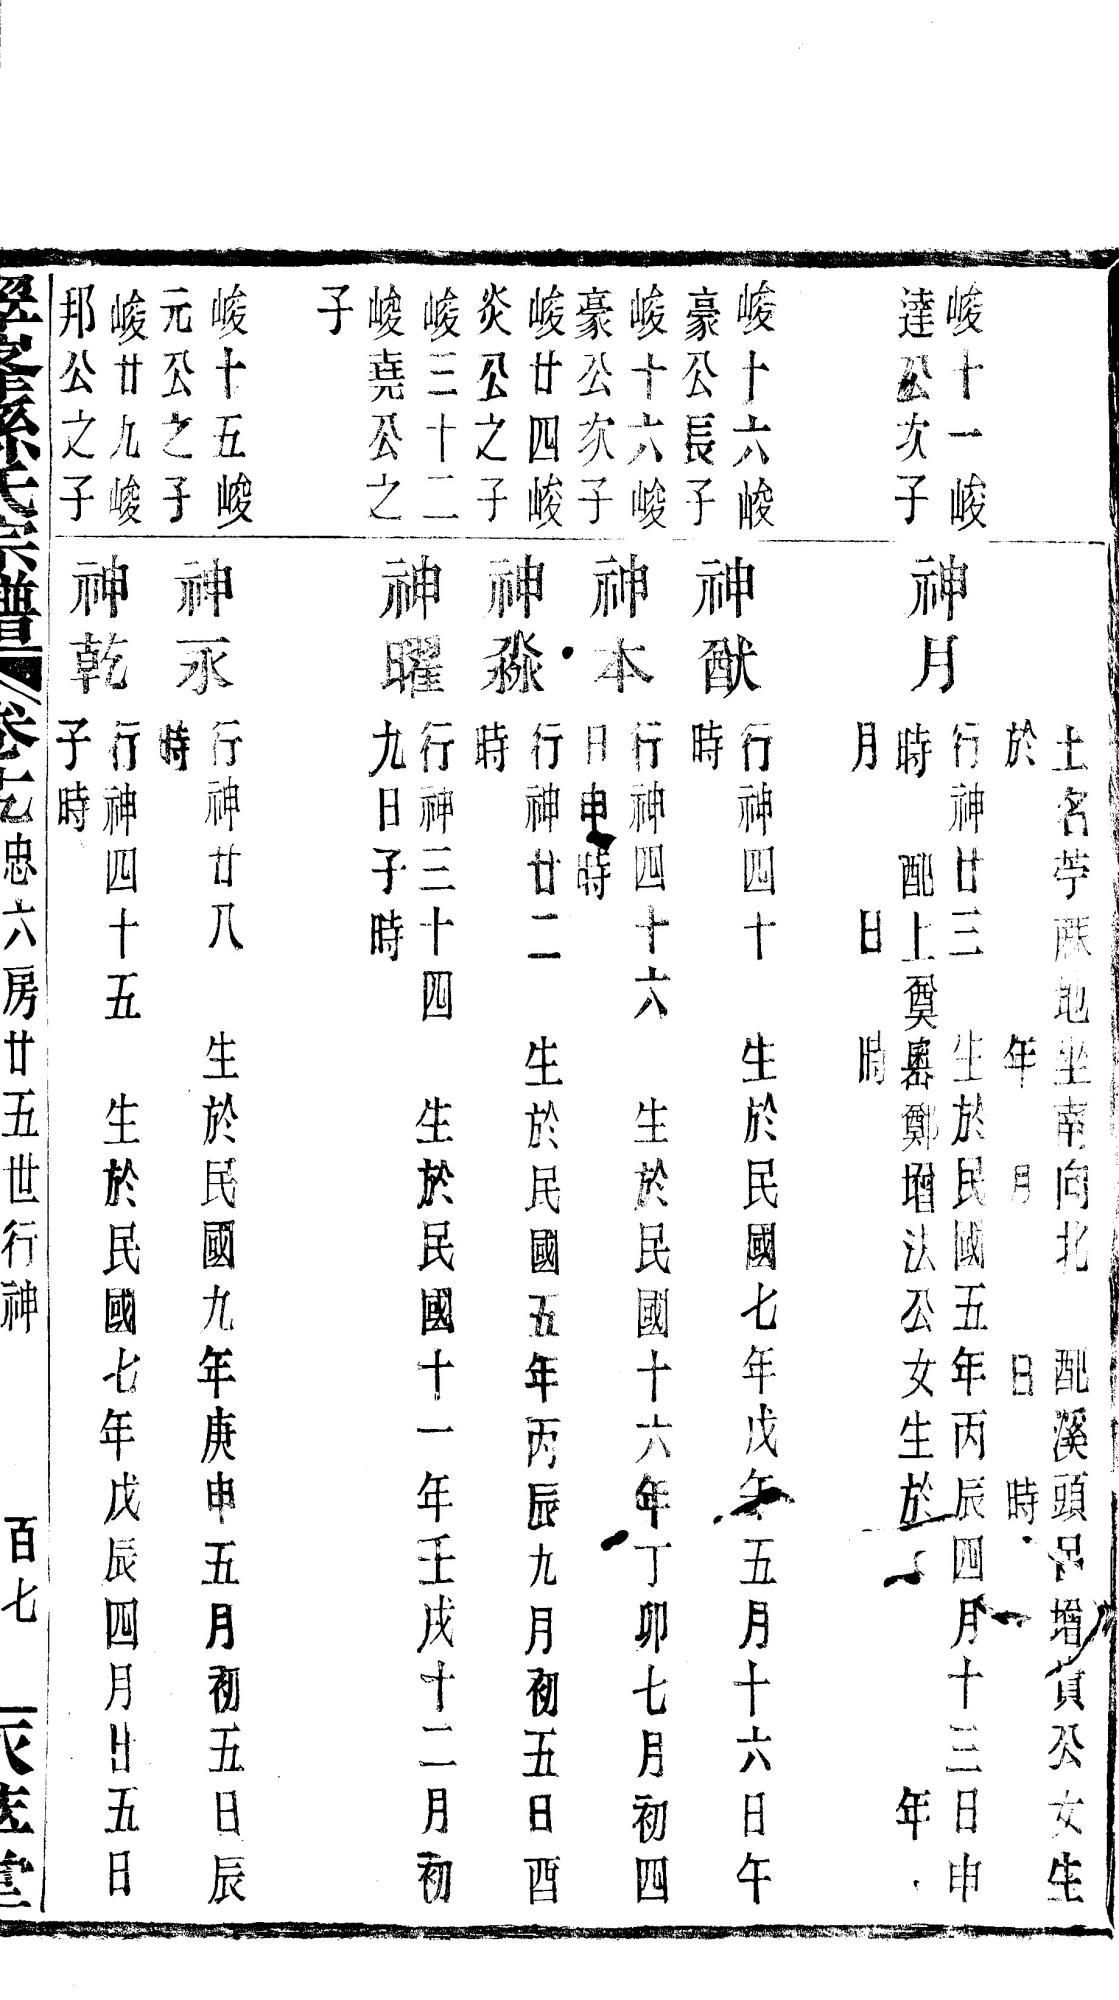 土名苧蔴地坐南向北 配溪頭呂增貞公女生
於 年 月 日 時
峻十一峻
達公次子
神月
行神廿三 生於民國五年丙辰四月十三日申
時 配上奠嶴鄭增法公女生於 年
月 日 時
峻十六峻
豪公長子
神猷
行神四十 生於民國七年戊午五月十六日午
時
峻十六峻
豪公次子
神本
行神四十六 生於民國十六年丁卯七月初四
日申時
峻廿四峻
炎公之子
神淼
行神廿二 生於民國五年丙辰九月初五日酉
時
峻三十二
峻堯公之
子
神曜
行神三十四 生於民國十一年壬戌十二月初
九日子時
峻十五峻
元公之子
神永
行神廿八 生於民國九年庚申五月初五日辰
時
峻廿九峻
邦公之子
神乾
行神四十五 生於民國七年戊辰四月廿五日
子時
氏宗譜 卷 忠六房廿五世行神 百七 堂